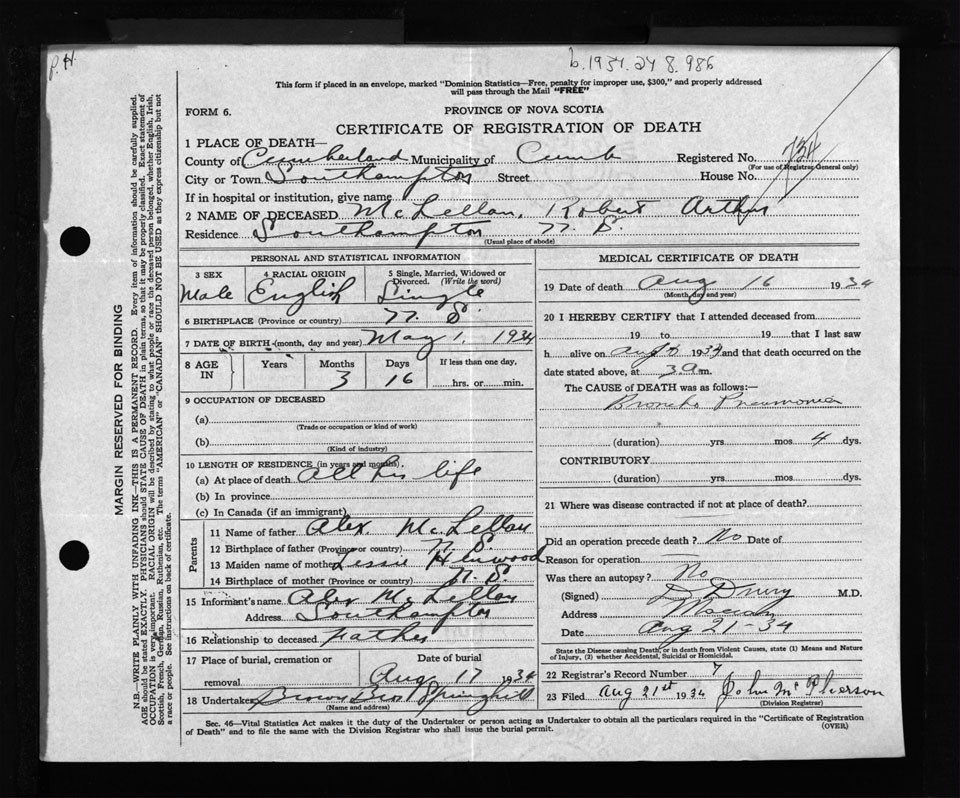 P.H.
b. 1934. 24 8. 986
This form if placed in an envelope, marked "Dominion Statistics—Free, penalty for improper use, $300," and properly addressed
will pass through the Mail "FREE"
FORM 6.
PROVINCE OF NOVA SCOTIA
CERTIFICATE OF REGISTRATION OF DEATH
1 PLACE OF DEATH—
County of Cumberland Municipality of Cumb Registered No. 734
(For use of Registrar General only)
City or Town Southampton Street House No.
If in hospital or institution, give name
2 NAME OF DECEASED McLellan, Robert Arthur
Residence Southampton N. S.
(Usual place of abode)
PERSONAL AND STATISTICAL INFORMATION
3 SEX 4 RACIAL ORIGIN 5 Single, Married, Widowed or Divorced. (Write the word)
Male English Single
6 BIRTHPLACE (Province or country) N. S.
7 DATE OF BIRTH (month, day and year) May 1. 1934
8 AGE IN Years Months Days If less than one day,
3 16 hrs. or min.
9 OCCUPATION OF DECEASED
(a)
(Trade or occupation or kind of work)
(b)
(Kind of industry)
10 LENGTH OF RESIDENCE (in years and months).
(a) At place of death All his life
(b) In province
(c) In Canada (if an immigrant)
Parents
11 Name of father Alex. McLellan
12 Birthplace of father (Province or country) N. S.
13 Maiden name of mother Lessie Henwood
14 Birthplace of mother (Province or country) N. S.
15 Informant's name Alex McLellan
Address Southampton
16 Relationship to deceased Father
17 Place of burial, cremation or removal Date of burial
Aug 17 1934
18 Undertaker Brown Bros Springhill
(Name and address)
MEDICAL CERTIFICATE OF DEATH
19 Date of death Aug 16 1934
(Month, day and year)
20 I HEREBY CERTIFY that I attended deceased from
19 to 19 that I last saw
h alive on Aug 1934 and that death occurred on
date stated above, at 3 a.m.
The CAUSE OF DEATH was as follows:—
Broncho Pneumonia
(duration) yrs. mos. 4 dys.
CONTRIBUTORY
(duration) yrs. mos. dys.
21 Where was disease contracted if not at place of death?
Did an operation precede death? No Date of
Reason for operation
Was there an autopsy? No
(Signed) Drury M.D.
Address Maccan
Date Aug 21-34
State the Disease causing Death, or in death from Violent Causes, state (1) Means and Nature
of Injury, (2) whether Accidental, Suicidal or Homicidal.
22 Registrar's Record Number 7
23 Filed Aug 21st 1934 John McPherson
(Division Registrar)
Sec. 46—Vital Statistics Act makes it the duty of the Undertaker or person acting as Undertaker to obtain all the particulars required in the "Certificate of Registration
of Death" and to file the same with the Division Registrar who shall issue the burial permit.
(OVER)
MARGIN RESERVED FOR BINDING
N.B.—WRITE PLAINLY WITH UNFADING INK—THIS IS A PERMANENT RECORD. Every item of information should be carefully supplied.
AGE should be stated EXACTLY. PHYSICIANS should STATE CAUSE OF DEATH in plain terms, so that it may be properly classified. Exact statement of
OCCUPATION is very important. RACIAL ORIGIN will be described by stating to what people or race the deceased person belonged, whether English, Irish,
Scottish, French, German, Russian, Ruthenian, etc. The terms "AMERICAN" or "CANADIAN" SHOULD NOT BE USED as they express citizenship but not
a race or people. See instructions on back of certificate.